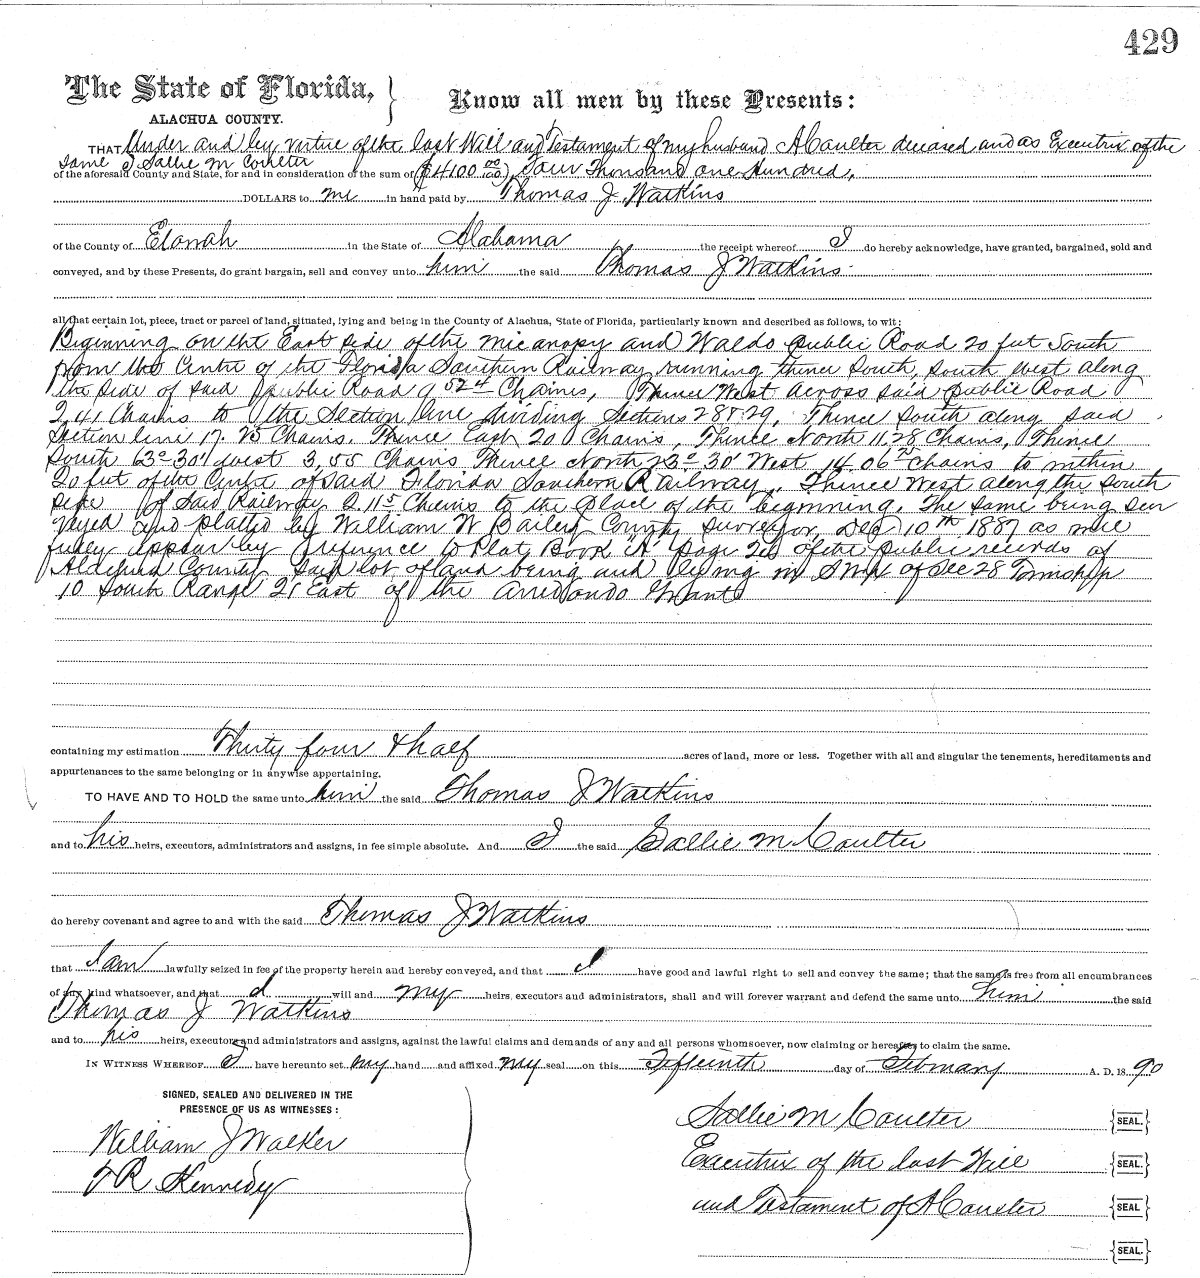 429
The State of Florida, }
ALACHUA COUNTY.
Know all men by these Presents:
THAT Under and by virtue of the last Will and Testament of my husband A Coulter deceased and as Executrix of the
same I Sallie M Coulter
of the aforesaid County and State, for and in consideration of the sum of ($4100 00/100) Four Thousand one Hundred,
DOLLARS to me in hand paid by Thomas J Watkins
of the County of Etowah in the State of Alabama the receipt whereof I do hereby acknowledge, have granted, bargained, sold and
conveyed, and by these Presents, do grant bargain, sell and convey unto him the said Thomas J Watkins
all that certain lot, piece, tract or parcel of land, situated, lying and being in the County of Alachua, State of Florida, particularly known and described as follows, to wit:
Beginning on the East side of the Micanopy and Waldo public Road 20 feet South
from the Centre of the Florida Southern Railway running thence South, South west along
the side of said public Road 9 52 4 Chains, Thence West across said public Road
2,41 Chains to the Section line dividing Sections 28 & 29, Thence South along said
Section line 17. 25 Chains. Thence East 20 Chains, Thence North 11,28 Chains, Thence
South 63° 30' west 3,55 Chains Thence North 23° 30' West 14.06 Chains to within
20 feet of the Centre of said Florida Southern Railway, Thence West along the South
side of said Railway 2.11 Chains to the place of the beginning. The same being sur
veyed and platted by William W Bailey County Surveyor, Dec 10th 1887 as more
fully appear by reference to Plat Book "A" page of the public records of
Alachua County said lot of land being and lying in of Sec 28 Township
10 South Range East of the Arredondo Grant
containing my estimation Thirty four & half acres of land, more or less. Together with all and singular the tenements, hereditaments and
appurtenances to the same belonging or in anywise appertaining.
TO HAVE AND TO HOLD the same unto him the said Thomas J Watkins
and to his heirs, executors, administrators and assigns, in fee simple absolute. And I the said Sallie M Coulter
do hereby covenant and agree to and with the said Thomas J Watkins
that I am lawfully seized in fee of the property herein and hereby conveyed, and that I have good and lawful right to sell and convey the same; that the same is free from all encumbrances
of any kind whatsoever, and that I will and my heirs, executors and administrators, shall and will forever warrant and defend the same unto him the said
Thomas J Watkins
and to his heirs, executors and administrators and assigns, against the lawful claims and demands of any and all persons whomsoever, now claiming or hereafter to claim the same.
IN WITNESS WHEREOF I have hereunto set my hand and affixed my seal on this Fifteinth day of February A. D. 18 90
SIGNED, SEALED AND DELIVERED IN THE
PRESENCE OF US AS WITNESSES:
William J Walker
R Kennedy
Sallie M Coulter {SEAL.}
Executrix of the last Will {SEAL.}
and Testament of A Coulter {SEAL}
{SEAL.}